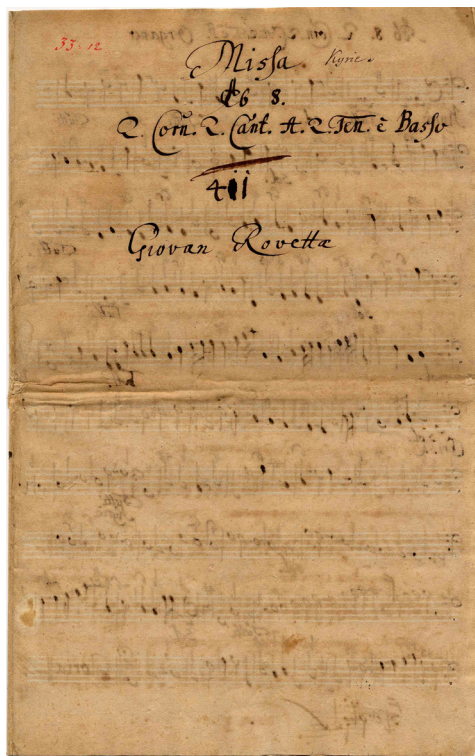 33:12
Missa Kyrie.
Ab 8.
2. Corn. 2. Cant. A. 2. Ten. è Basso
4
Giovan Rovetta